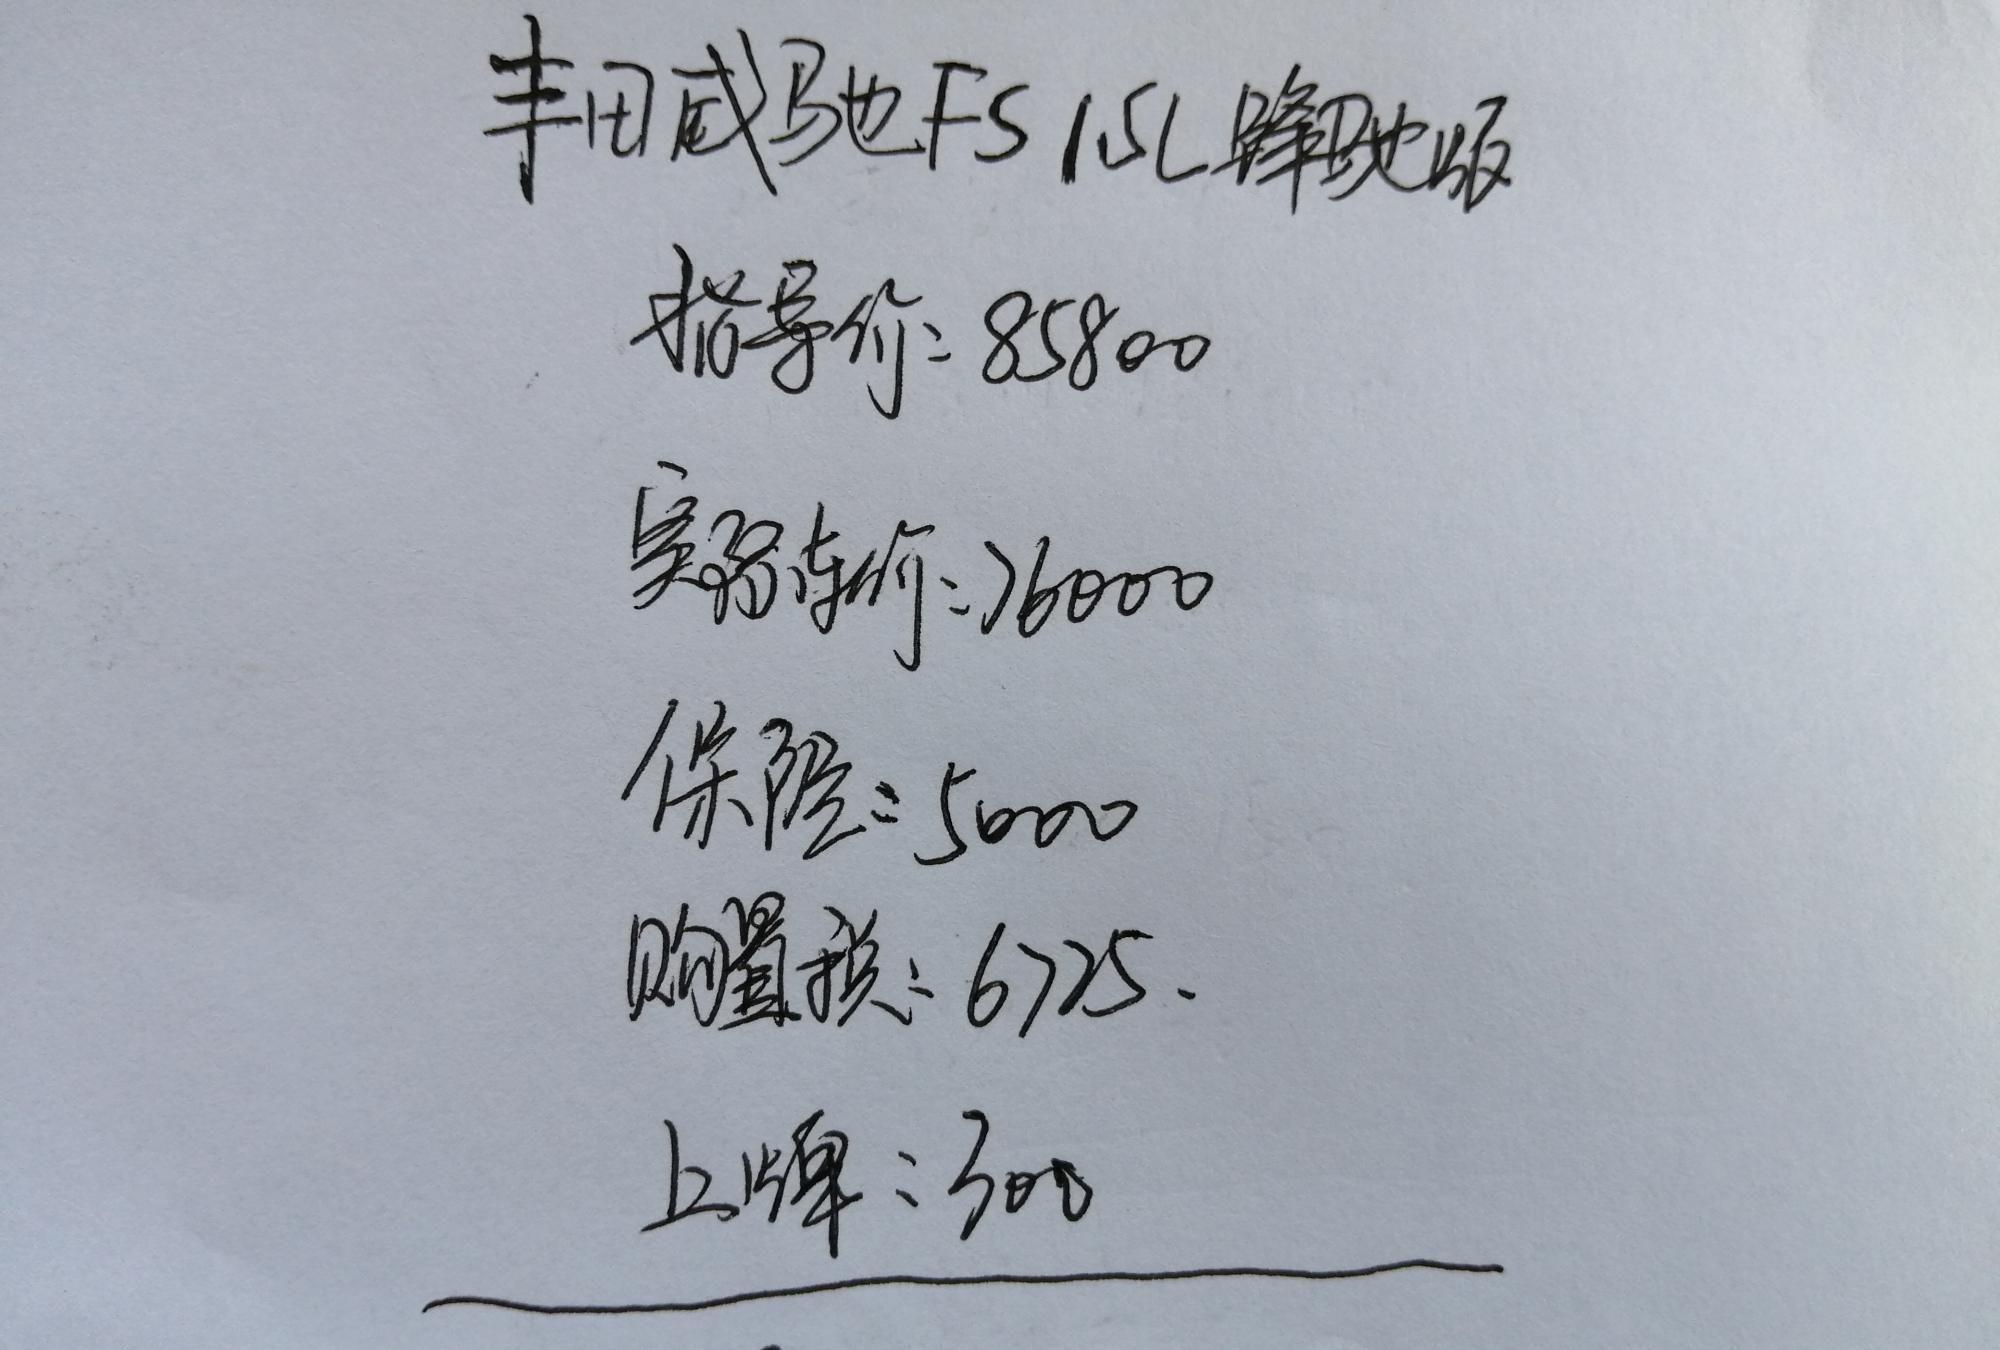 丰田威驰FS 1.5L 锋驰版
指导价：85800
实际车价：76000
保险：5000
购置税：6725.
上牌：300